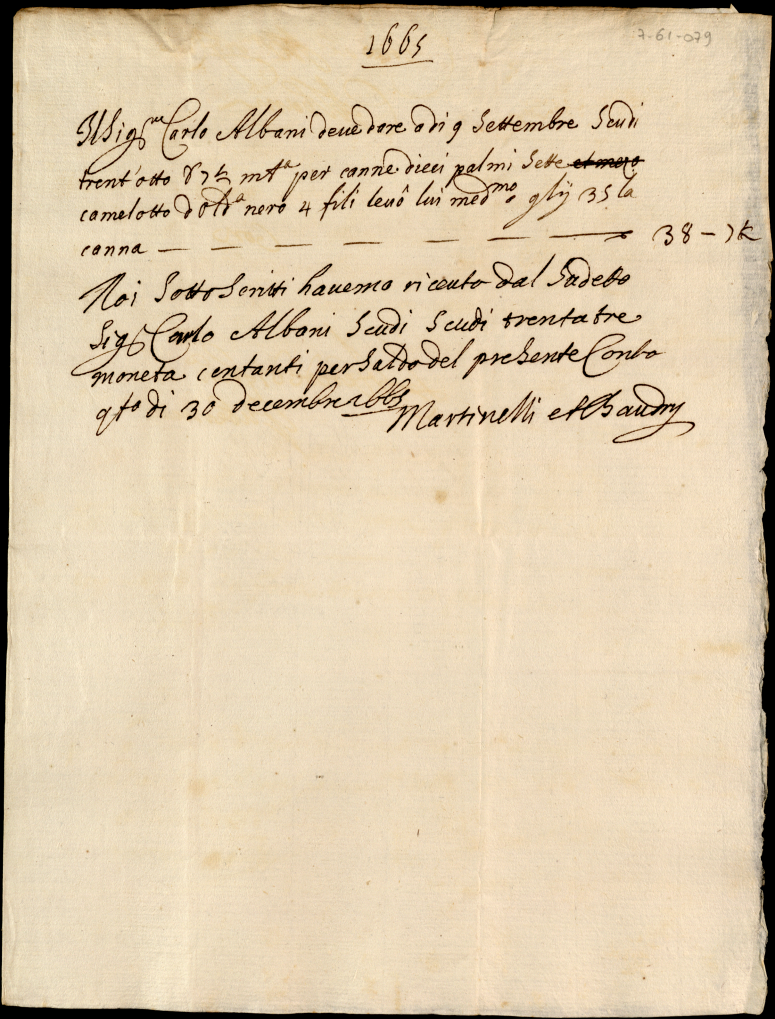 1665
7-61-079
Il Sig.re Carlo Albani deve dare adi 9 Settembre Scudi
trent'otto 7½ mta per canne dieci palmi Sette et mezo
camelotto d'Olda nero 4 fili levò lui medmo glij 35 la
canna — — — — — — — 38 – 7½
Noi Sotto Scritti havemo riceuto dal Sudetto
Sig.r Carlo Albani Scudi Scudi trentatre
moneta contanti per Saldo del presente Conto
qto di 30 decembre 1665
Martinelli et Baudry